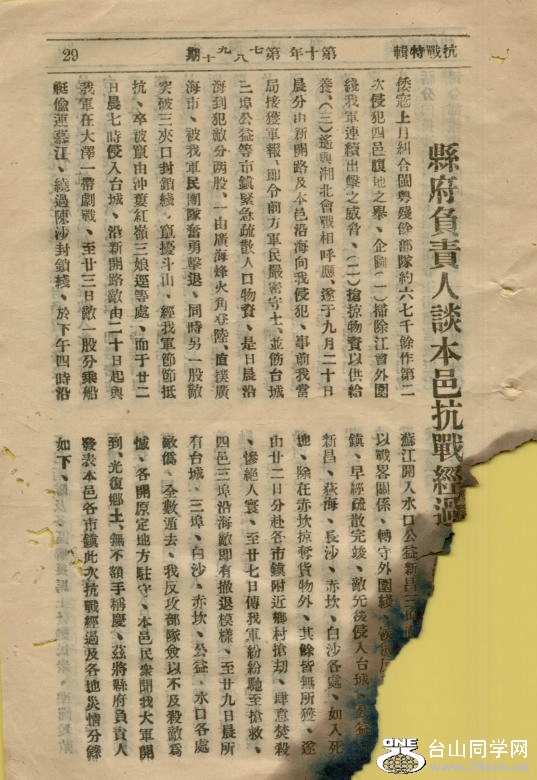 抗戰特輯
第十年第七八九十期
29
縣府負責人談本邑抗戰經過
倭寇上月糾合閩粵殘餘部隊約六七千餘作第二
次侵犯四邑腹地之舉、企圖(一)掃除江會外圍
綫我軍連續出擊之威脅、(二)搶掠物資以供給
養、(三)遙與湘北會戰相呼應、遂于九月二十日
晨分由新開路及本邑沿海向我侵犯、事前我當
局接獲軍報、即令前方軍民嚴密守土、並飭台城
三埠公益等市鎮緊急疏散人口物資、是日晨沿
海到犯敵分兩股、一由廣海烽火角登陸、直撲廣
海市、被我軍民團隊奮勇擊退、同時另一股敵
突破三夾口封鎖綫、竄擾斗山、經我軍節節抵
抗、卒被竄由沖蔞紅嶺三娘逕等處、而于廿二
日晨七時侵入台城、沿新開路敵由二十日起與
我軍在大澤一帶劇戰、至廿三日敵一股分乘船
艇偷運蘇江、繞過陳沙封鎖綫、於下午四時沿
蘇江開入水口公益新昌三埠
以戰畧關係、轉守外圍綫、
鎮、早經疏散完竣、敵先後侵入台城、公益
新昌、荻海、長沙、赤坎、白沙各處、如入死
地、除在赤坎掠奪貨物外、其餘皆無所獲、遂
由廿二日分赴各市鎮附近鄉村搶劫、肆意焚殺
、慘絕人寰、至廿七日傳我軍紛紛馳至搶救、
四邑三埠沿海敵即有撤退模樣、至廿九日晨所
有台城、三埠、白沙、赤坎、公益、水口各處
敵僞、全數遁去、我反攻部隊僉以不及殺敵爲
憾、各開原定地方駐守、本邑民衆聞我大軍開
到、光復鄉土、無不額手稱慶、茲將縣府負責人
發表本邑各市鎮此次抗戰經過及各地災情分錄
如下、
ONE
台山同学网